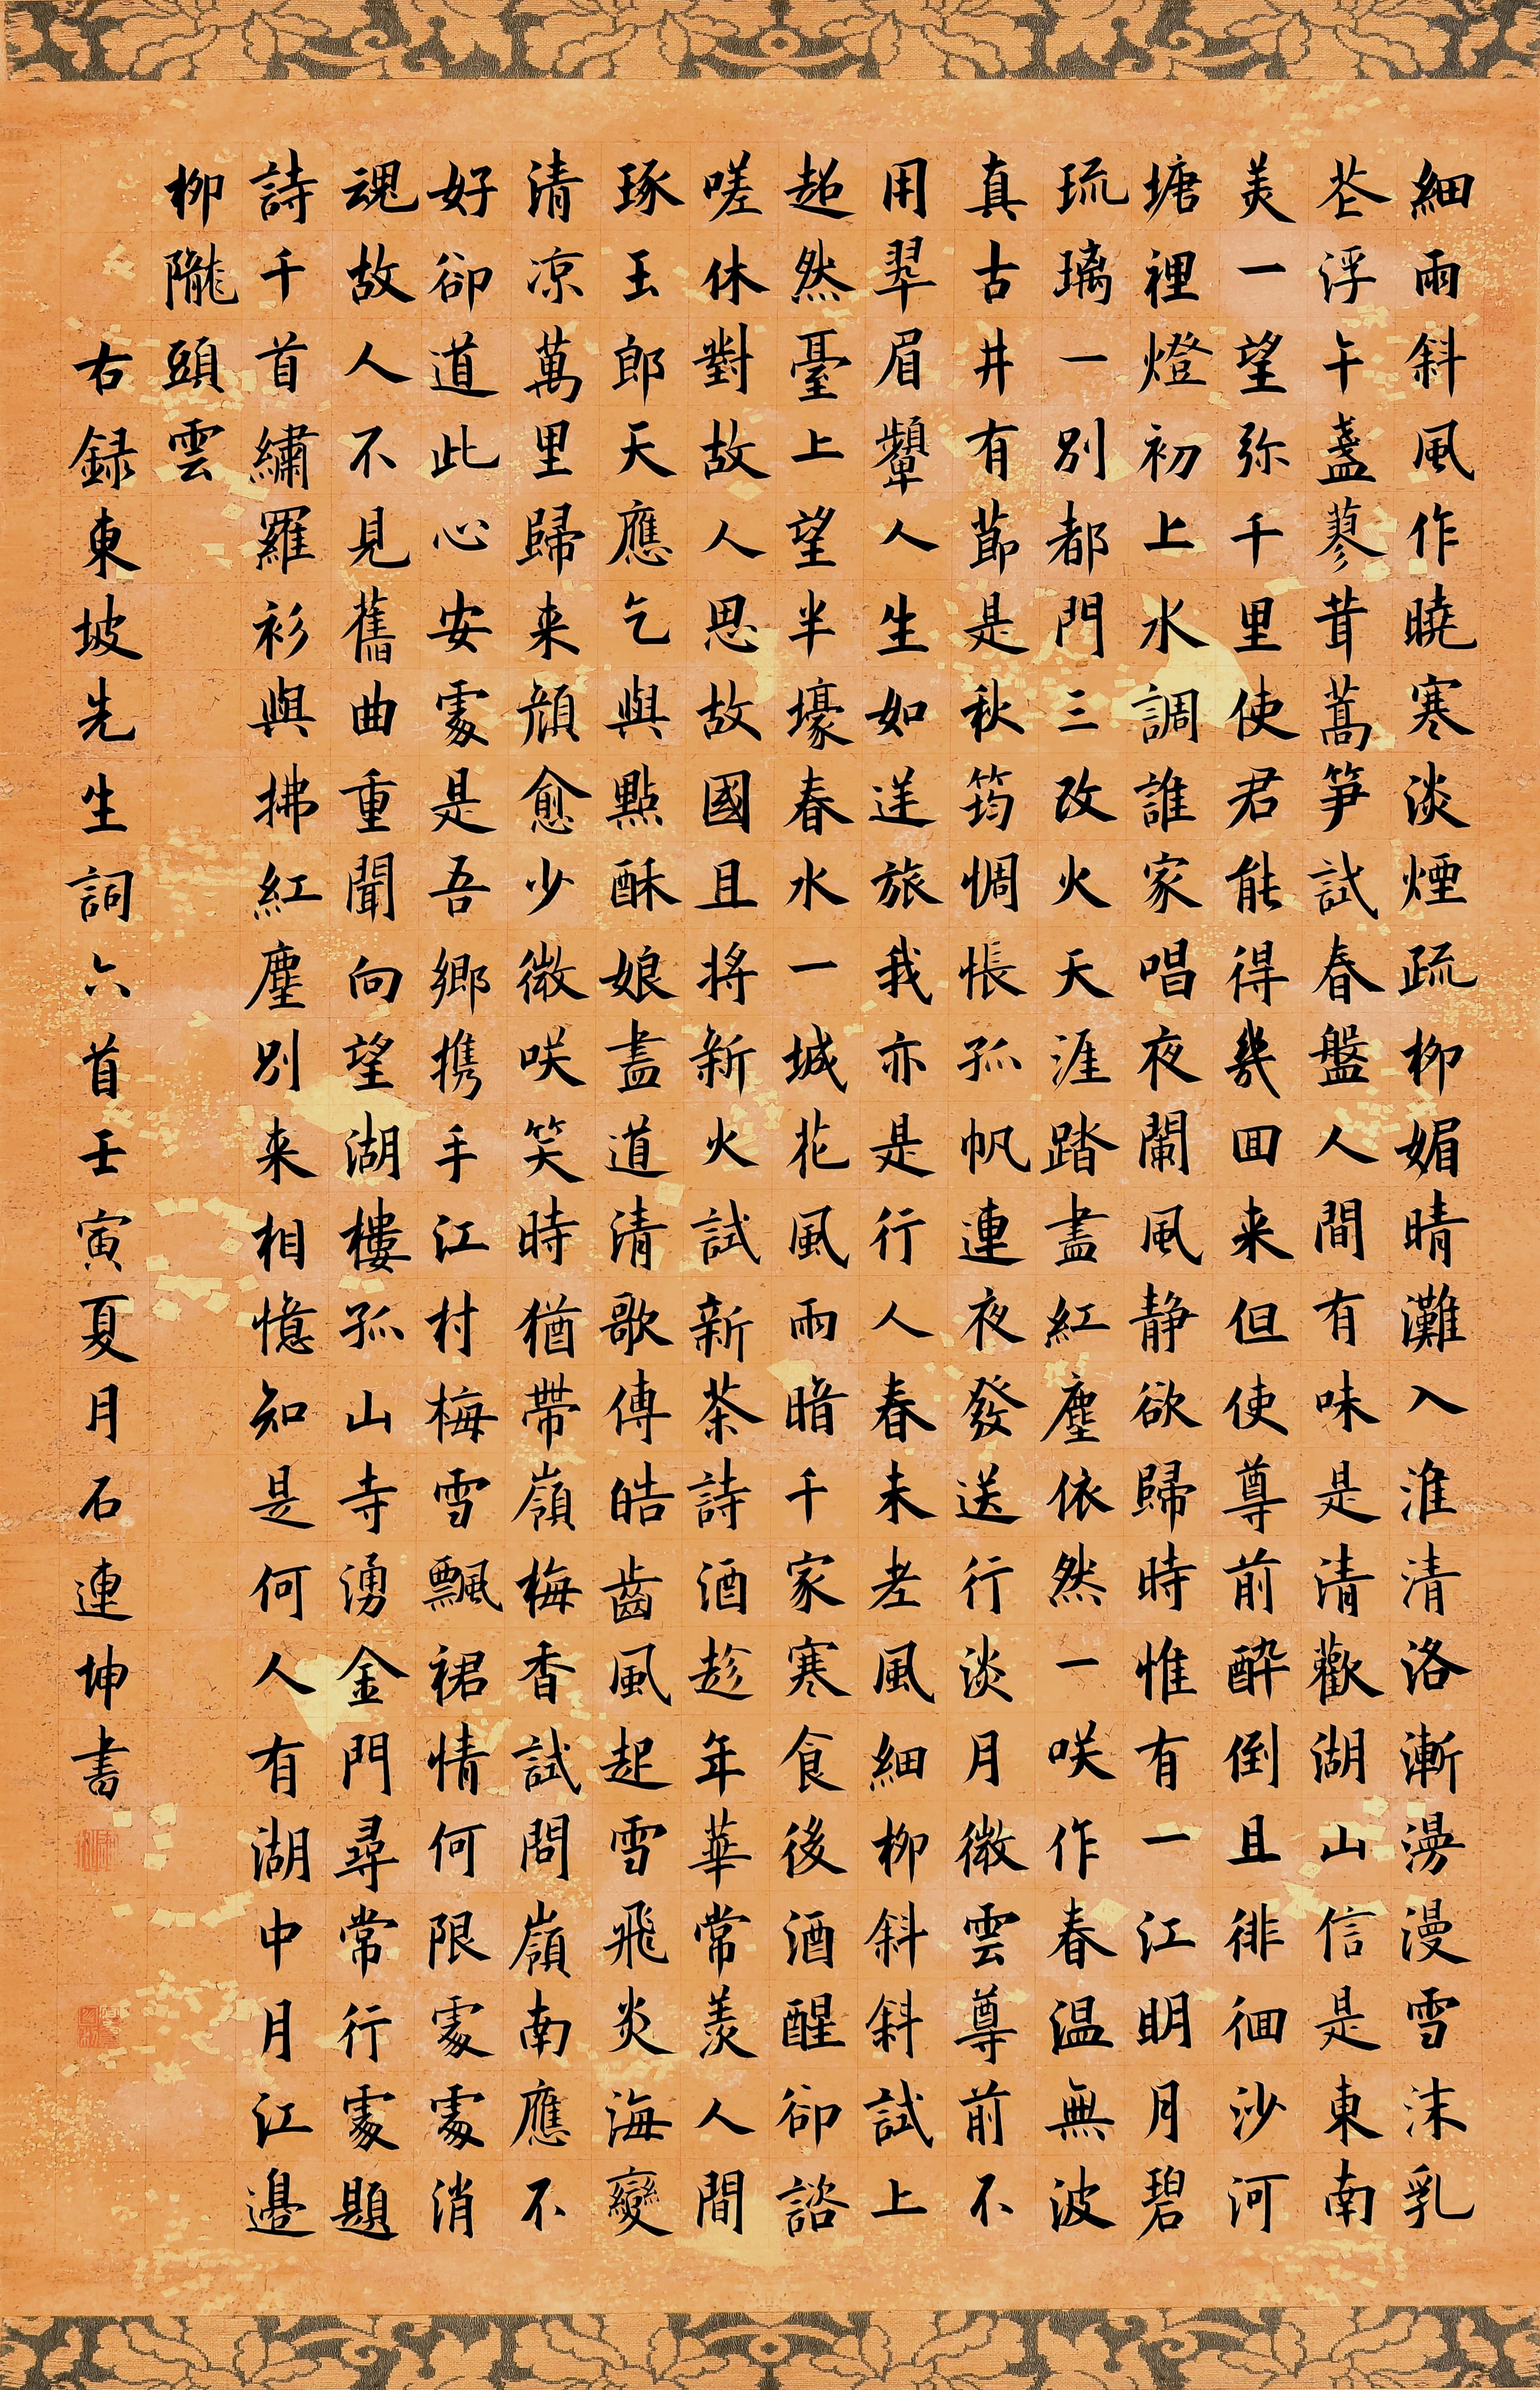 細雨斜風作曉寒淡煙疏柳媚晴灘入淮清洛漸漫漫雪沫乳
花浮午盞蓼茸蒿笋試春盤人間有味是清歡湖山信是東南
美一望弥千里使君能得幾回来但使尊前醉倒且徘徊沙河
塘裡燈初上水調誰家唱夜闌風静欲歸時惟有一江明月碧
琉璃一別都門三改火天涯踏盡紅塵依然一咲作春温無波
真古井有節是秋筠惆悵孤帆連夜發送行淡月微雲尊前不
用翠眉顰人生如逆旅我亦是行人春未老風細柳斜斜試上
超然臺上望半壕春水一城花風雨暗千家寒食後酒醒卻諮
嗟休對故人思故國且將新火試新茶詩酒趁年華常羨人間
琢玉郎天應乞與點酥娘盡道清歌傳皓齒風起雪飛炎海變
清凉萬里歸来顔愈少微咲笑時猶帶嶺梅香試問嶺南應不
好卻道此心安處是吾鄉携手江村梅雪飄裙情何限處處消
魂故人不見舊曲重聞向望湖樓孤山寺湧金門尋常行處題
詩千首繡羅衫與拂紅塵別来相憶知是何人有湖中月江邊
柳隴頭雲
右録東坡先生詞六首壬寅夏月石連坤書